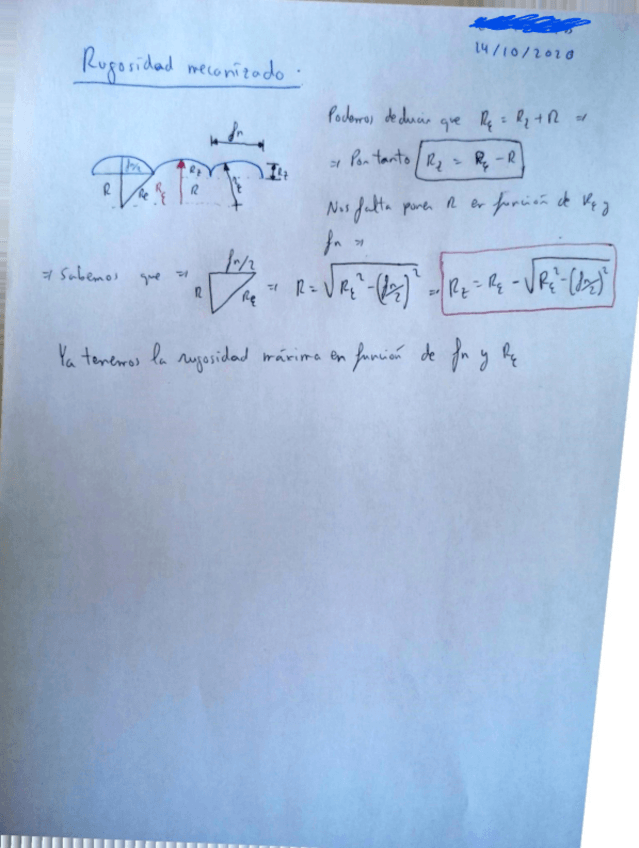 14/10/2020
Rugosidad mecanizado.
fn
fn/2 Rz Rz
R Rε Rε R Rε
Podemos deducir que Rε = Rz + R ⇒
⇒ Por tanto Rz = Rε - R
Nos falta poner R en función de Rε y
fn ⇒
⇒ Sabemos que ⇒ R fn/2 Rε ⇒ R = √(Rε² - (fn/2)²) ⇒ Rz = Rε - √(Rε² - (fn/2)²)
Ya tenemos la rugosidad máxima en función de fn y Rε